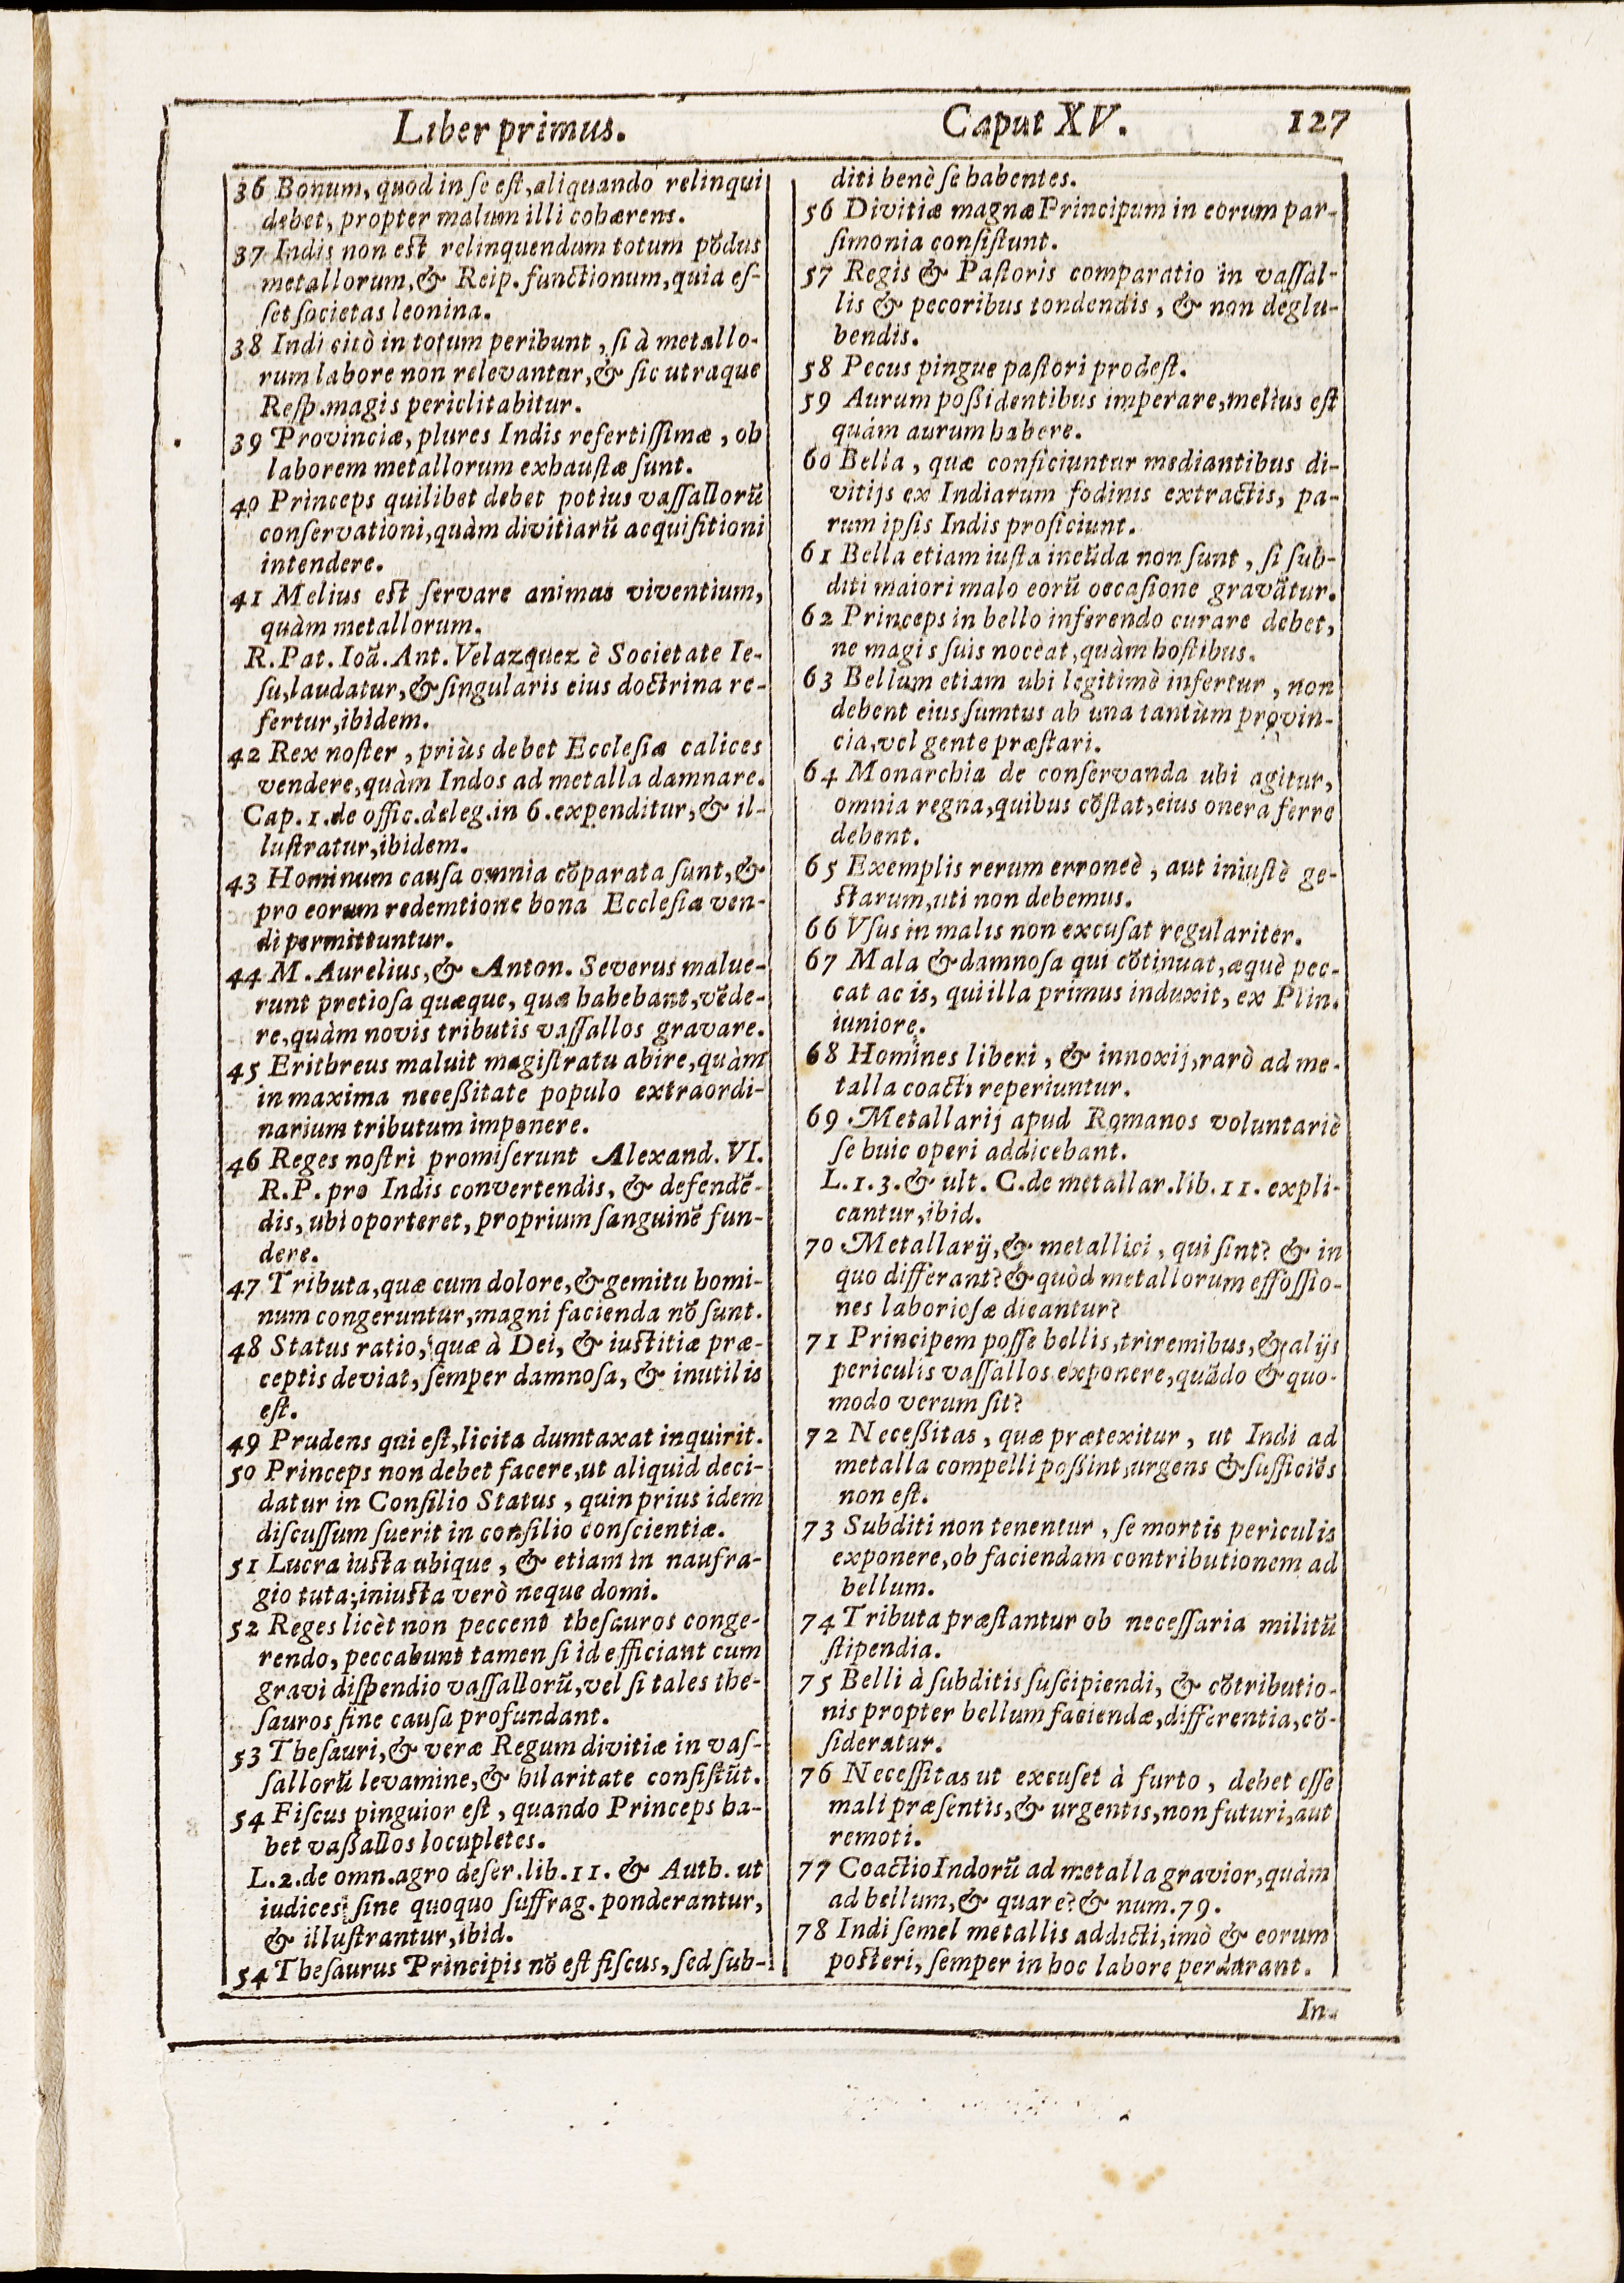 Liber primus.
Caput XV.
127
36 Bonum, quod in se est, aliquando relinqui
debet, propter malum illi cohærens.
37 Indis non est relinquendum totum põdus
metallorum, & Reip. functionum, quia es-
set societas leonina.
38 Indi citò in totum peribunt, si à metallo-
rum labore non relevantur, & sic utraque
Resp. magis periclitabitur.
39 Provinciæ, plures Indis refertissimæ, ob
laborem metallorum exhaustæ sunt.
40 Princeps quilibet debet potius vassallorũ
conservationi, quàm divitiarũ acquisitioni
intendere.
41 Melius est servare animas viventium,
quàm metallorum.
R. Pat. Ioã. Ant. Velazquez è Societate Ie-
su, laudatur, & singularis eius doctrina re-
fertur, ibidem.
42 Rex noster, priùs debet Ecclesiæ calices
vendere, quàm Indos ad metalla damnare.
Cap. 1. de offic. deleg. in 6. expenditur, & il-
lustratur, ibidem.
43 Hominum causa omnia cõparata sunt, &
pro eorum redemtione bona Ecclesiæ ven-
di permittuntur.
44 M. Aurelius, & Anton. Severus malue-
runt pretiosa quæque, quæ habebant, vẽde-
re, quàm novis tributis vassallos gravare.
45 Erithreus maluit magistratu abire, quàm
in maxima necessitate populo extraordi-
narium tributum imponere.
46 Reges nostri promiserunt Alexand. VI.
R. P. pro Indis convertendis, & defendẽ-
dis, ubi oporteret, proprium sanguinẽ fun-
dere.
47 Tributa, quæ cum dolore, & gemitu homi-
num congeruntur, magni facienda nõ sunt.
48 Status ratio, quæ à Dei, & iustitiæ præ-
ceptis deviat, semper damnosa, & inutilis
est.
49 Prudens qui est, licita dumtaxat inquirit.
50 Princeps non debet facere, ut aliquid deci-
datur in Consilio Status, quin prius idem
discussum fuerit in consilio conscientiæ.
51 Lucra iusta ubique, & etiam in naufra-
gio tuta; iniusta verò neque domi.
52 Reges licèt non peccent thesauros conge-
rendo, peccabunt tamen si id efficiant cum
gravi dispendio vassallorũ, vel si tales the-
sauros sine causa profundant.
53 Thesauri, & veræ Regum divitiæ in vas-
sallorũ levamine, & hilaritate consistũt.
54 Fiscus pinguior est, quando Princeps ha-
bet vassallos locupletes.
L. 2. de omn. agro deser. lib. 11. & Auth. ut
iudices sine quoquo suffrag. ponderantur,
& illustrantur, ibid.
54 Thesaurus Principis nõ est fiscus, sed sub-
diti benè se habentes.
56 Divitiæ magnæ Principum in eorum par-
simonia consistunt.
57 Regis & Pastoris comparatio in vassal-
lis & pecoribus tondendis, & non deglu-
bendis.
58 Pecus pingue pastori prodest.
59 Aurum possidentibus imperare, melius est
quàm aurum habere.
60 Bella, quæ conficiuntur mediantibus di-
vitijs ex Indiarum fodinis extractis, pa-
rum ipsis Indis proficiunt.
61 Bella etiam iusta ineũda non sunt, si sub-
diti maiori malo eorũ occasione gravãtur.
62 Princeps in bello inferendo curare debet,
ne magis suis noceat, quàm hostibus.
63 Bellum etiam ubi legitimè infertur, non
debent eius sumtus ab una tantùm provin-
cia, vel gente præstari.
64 Monarchia de conservanda ubi agitur,
omnia regna, quibus cõstat, eius onera ferre
debent.
65 Exemplis rerum erroneè, aut iniustè ge-
starum, uti non debemus.
66 Vsus in malis non excusat regulariter.
67 Mala & damnosa qui cõtinuat, æquè pec-
cat ac is, qui illa primus induxit, ex Plin.
iuniore.
68 Homines liberi, & innoxij, rarò ad me-
talla coacti reperiuntur.
69 Metallarij apud Romanos voluntariè
se huic operi addicebant.
L. 1. 3. & ult. C. de metallar. lib. 11. expli-
cantur, ibid.
70 Metallarij, & metallici, qui sint? & in
quo differant? & quòd metallorum effossio-
nes laboriosæ dicantur?
71 Principem posse bellis, triremibus, & alijs
periculis vassallos exponere, quãdo & quo-
modo verum sit?
72 Necessitas, quæ prætexitur, ut Indi ad
metalla compelli possint, urgens & sufficiẽs
non est.
73 Subditi non tenentur, se mortis periculis
exponere, ob faciendam contributionem ad
bellum.
74 Tributa præstantur ob necessaria militũ
stipendia.
75 Belli à subditis suscipiendi, & cõtributio-
nis propter bellum faciendæ, differentia, cõ-
sideratur.
76 Necessitas ut excuset à furto, debet esse
mali præsentis, & urgentis, non futuri, aut
remoti.
77 Coactio Indorũ ad metalla gravior, quàm
ad bellum, & quare? & num. 79.
78 Indi semel metallis addicti, imò & eorum
posteri, semper in hoc labore perdurant.
In-